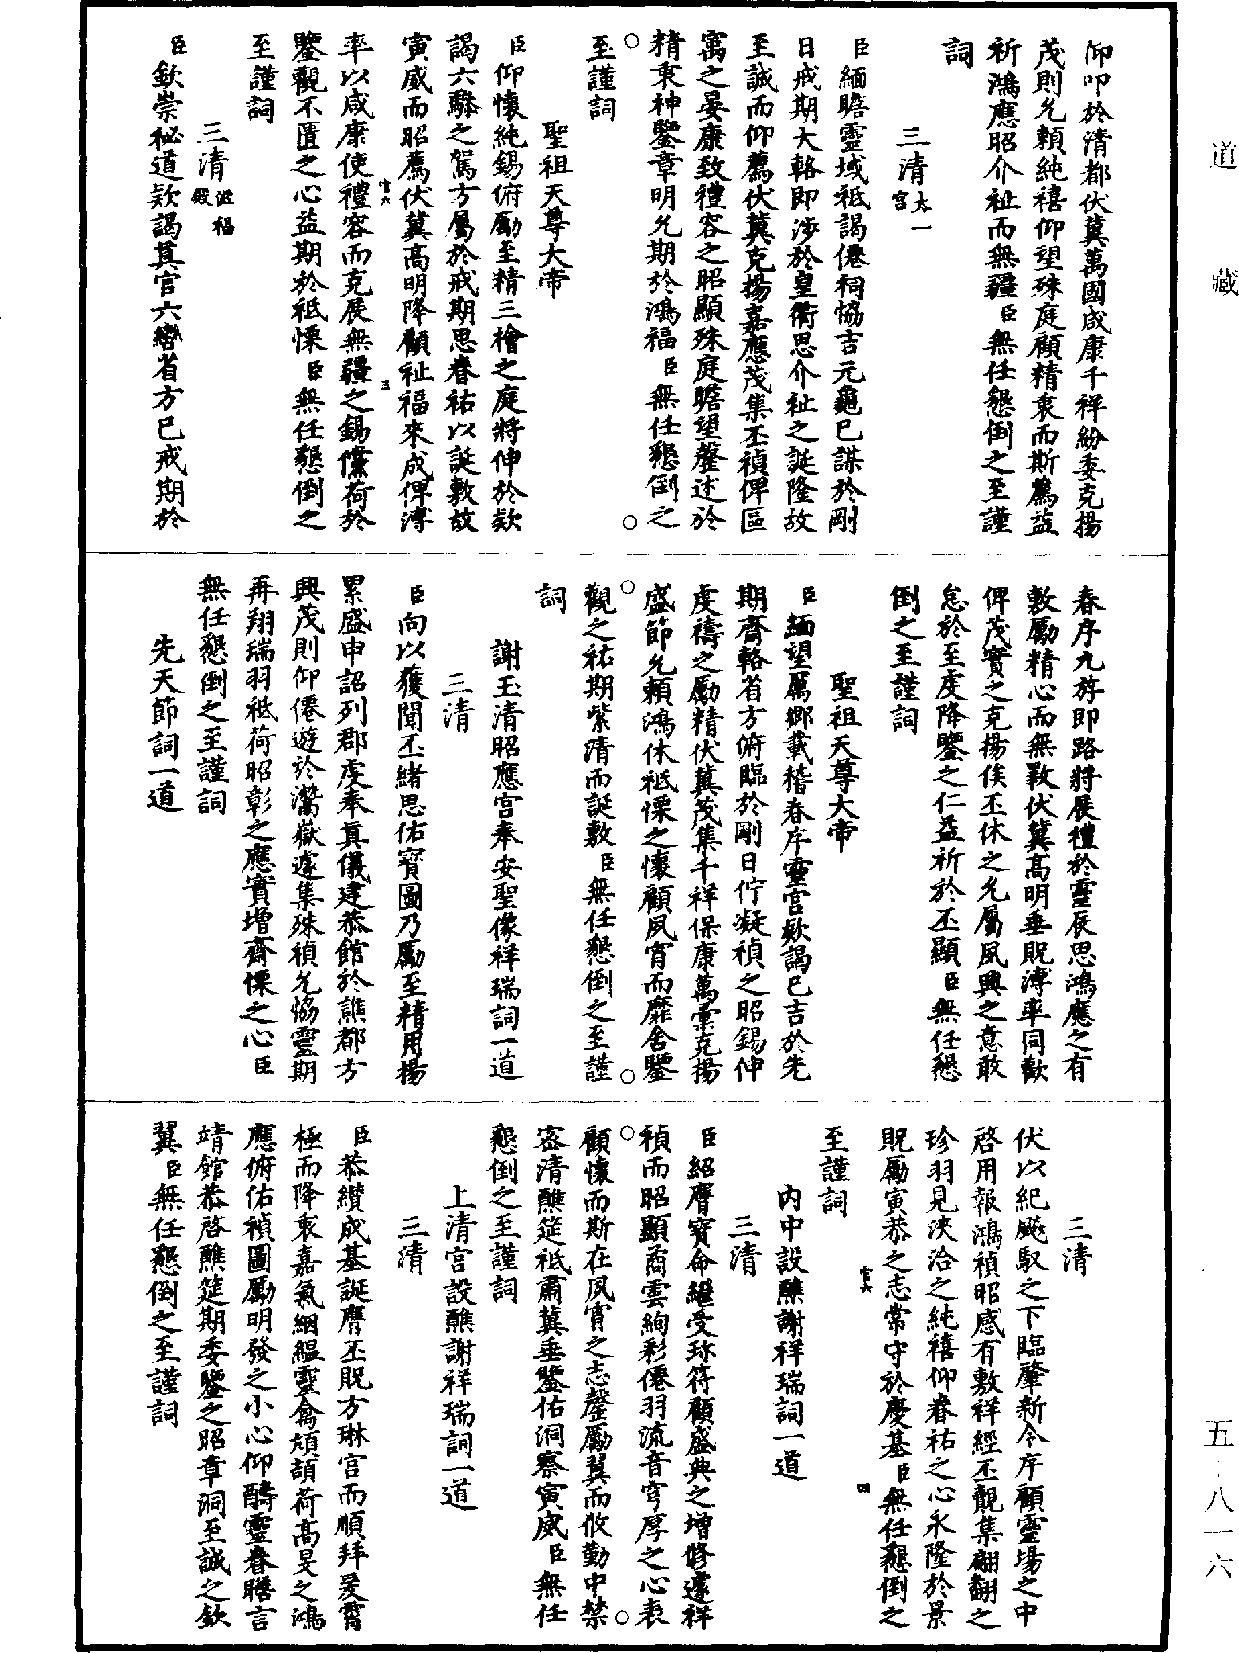 道藏
五·八一六
仰叩於清都伏冀萬國咸康千祥紛委克揚
茂則允賴純禧仰望殊庭顧精衷而斯薦益
祈鴻應昭介祉而無疆臣無任懇倒之至謹
詞
三清太一宮
臣緬瞻靈域祗謁僊祠恊吉元龜已謀於剛
日戒期大輅即涉於皇衢思介祉之誕隆故
至誠而仰薦伏冀克揚嘉應茂集丕禎俾區
寓之晏康致禮容之昭顯殊庭瞻望罄述於
精衷神鑒章明允期於鴻福臣無任懇倒之
至謹詞
聖祖天尊大帝
臣仰懷純錫俯勵至精三檜之庭將伸於欵
謁六騑之駕方屬於戒期思眷祐以誕敷故
寅威而昭薦伏冀高明降顧祉福來成俾溥
率以咸康使禮容而克展無疆之錫儻荷於
鑒觀不匱之心益期於祗慄臣無任懇倒之
至謹詞
三清迎福殿
臣欽崇祕道欵謁其官六轡省方已戒期於
春序九斿即路將展禮於靈辰思鴻應之有
敷勵精心而無斁伏冀高明垂貺溥率同歡
俾茂實之克揚俟丕休之允屬夙興之意敢
怠於至虔降鑒之仁益祈於丕顯臣無任懇
倒之至謹詞
聖祖天尊大帝
臣緬望厲鄉載稽春序靈宮欵謁已吉於先
期齋輅省方俯臨於剛日佇凝禎之昭錫伸
虔禱之勵精伏冀茂集千祥保康萬彙克揚
盛節允賴鴻休祗慄之懷顧夙宵而靡舍鑒
觀之祐期紫清而誕敷臣無任懇倒之至謹
詞
謝玉清昭應宮奉安聖像祥瑞詞一道
三清
臣向以獲聞丕緒思佑寶圖乃勵至精用揚
累盛申詔列郡虔奉真儀建恭館於譙都方
興茂則仰僊遊於灊嶽遽集殊禎允恊靈期
再翔瑞羽祗荷昭彰之應實增齋慄之心臣
無任懇倒之至謹詞
先天節詞一道
三清
伏以紀飈馭之下臨肇新令序顧靈場之中
啓用報鴻禎昭感有敷祥經丕覩集翩翻之
珍羽見浹洽之純禧仰眷祐之心永隆於景
貺勵寅恭之志常守於慶基臣無任懇倒之
至謹詞
內中設醮謝祥瑞詞一道
三清
臣紹膺寶命繼受珍符顧盛典之增修遽祥
禎而昭顯矞雲絢彩僊羽流音穹厚之心表
顧懷而斯在夙宵之志罄勵翼而攸勤中禁
宓清醮筵祗肅冀垂鑒佑洞察寅威臣無任
懇倒之至謹詞
上清宮設醮謝祥瑞詞一道
三清
臣恭纘成基誕膺丕貺方琳宮而順拜爰霄
極而降衷嘉氣絪縕靈禽頏頡荷高旻之鴻
應俯佑禎圖勵明發之小心仰醻靈眷瞻言
靖館恭啓醮筵期委鑒之昭章洞至誠之欽
翼臣無任懇倒之至謹詞